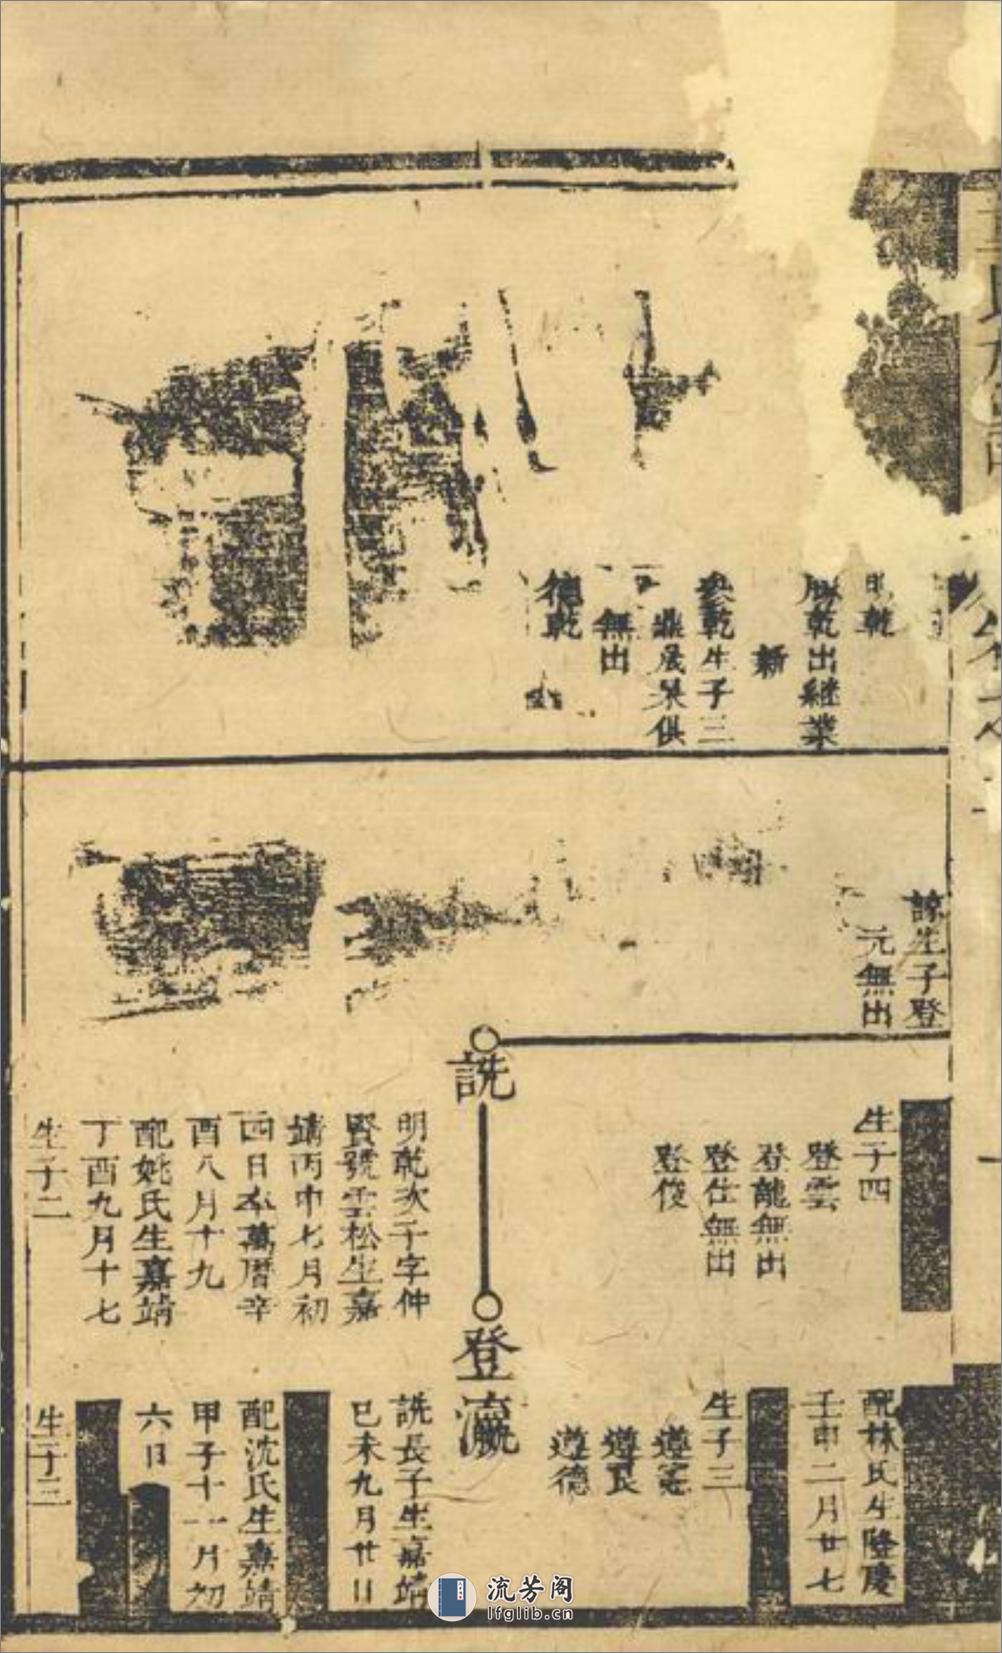 乾
勝乾出繼業
新
乾生子三
鼎晟杲俱
無出
德乾
諒生子登
元無出
生子四
登雲
登龍無出
登仕無出
登俊
詵
明乾次子字仲
賢號雲松生嘉
靖丙申七月初
四日卒萬曆辛
酉八月十九
配姚氏生嘉靖
丁酉九月十七
生子二
配林氏生隆慶
壬申二月廿七
生子三
遵憲
遵良
遵德
登瀛
詵長子生嘉靖
已未九月廿日
配沈氏生嘉靖
甲子十一月初
六日
生子三
流芳阁
lfglib.cn